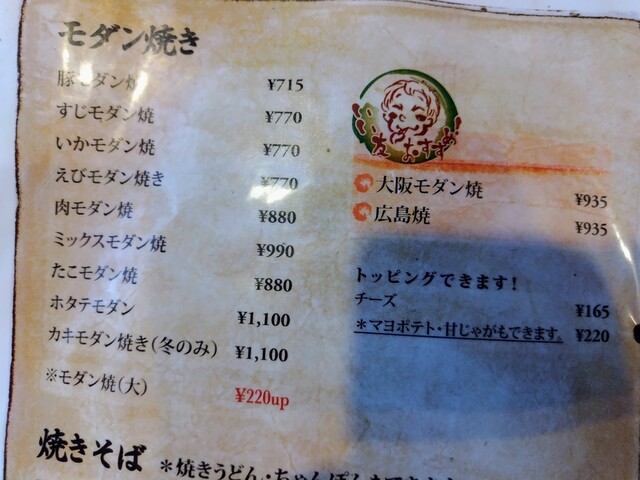 モダン焼き
豚モダン焼 ¥715
すじモダン焼 ¥770
いかモダン焼 ¥770
えびモダン焼き ¥770
肉モダン焼 ¥880
ミックスモダン焼 ¥990
たこモダン焼 ¥880
ホタテモダン ¥1,100
カキモダン焼き(冬のみ) ¥1,100
※モダン焼(大) ¥220up
おすすめ!
大阪モダン焼 ¥935
広島焼 ¥935
トッピングできます!
チーズ ¥165
＊マヨポテト・甘じゃがもできます。 ¥220
焼きそば ＊焼きうどん・ちゃんぽん